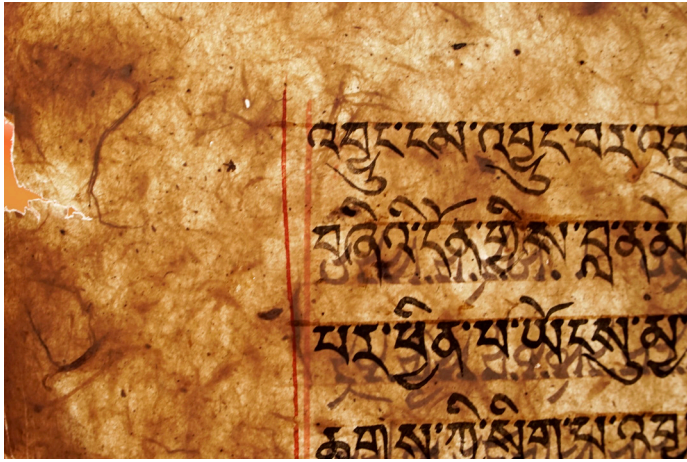 འབྱུང་ངམ་འབྱུང་བར་འ
བཞིའི་དོན་གྱིས་བླན་མེ
པར་ཕྱིན་པ་ཡོངས་སུ་མ
ཆགས་ཀྱི་སྲིག་པ་འབ